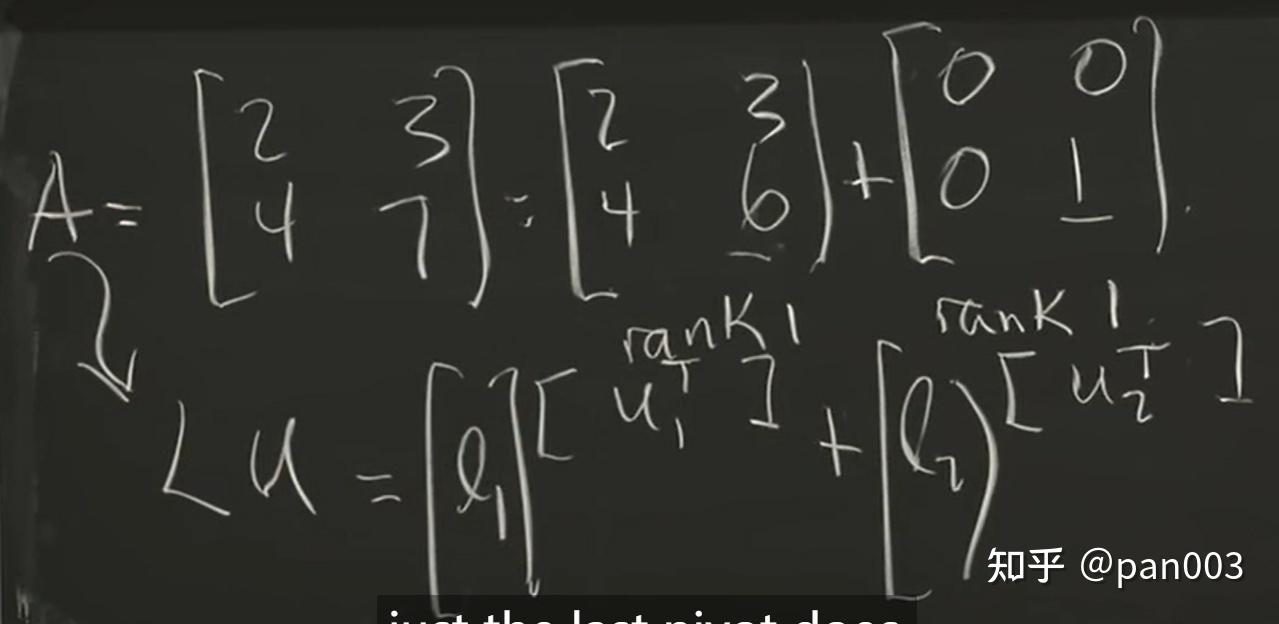 A = [2 3; 4 7] = [2 3; 4 6] + [0 0; 0 1].
rank 1 rank 1
LU = [l₁][u₁ᵀ] + [l₂][u₂ᵀ]
知乎 @pan003
just the last pivot does